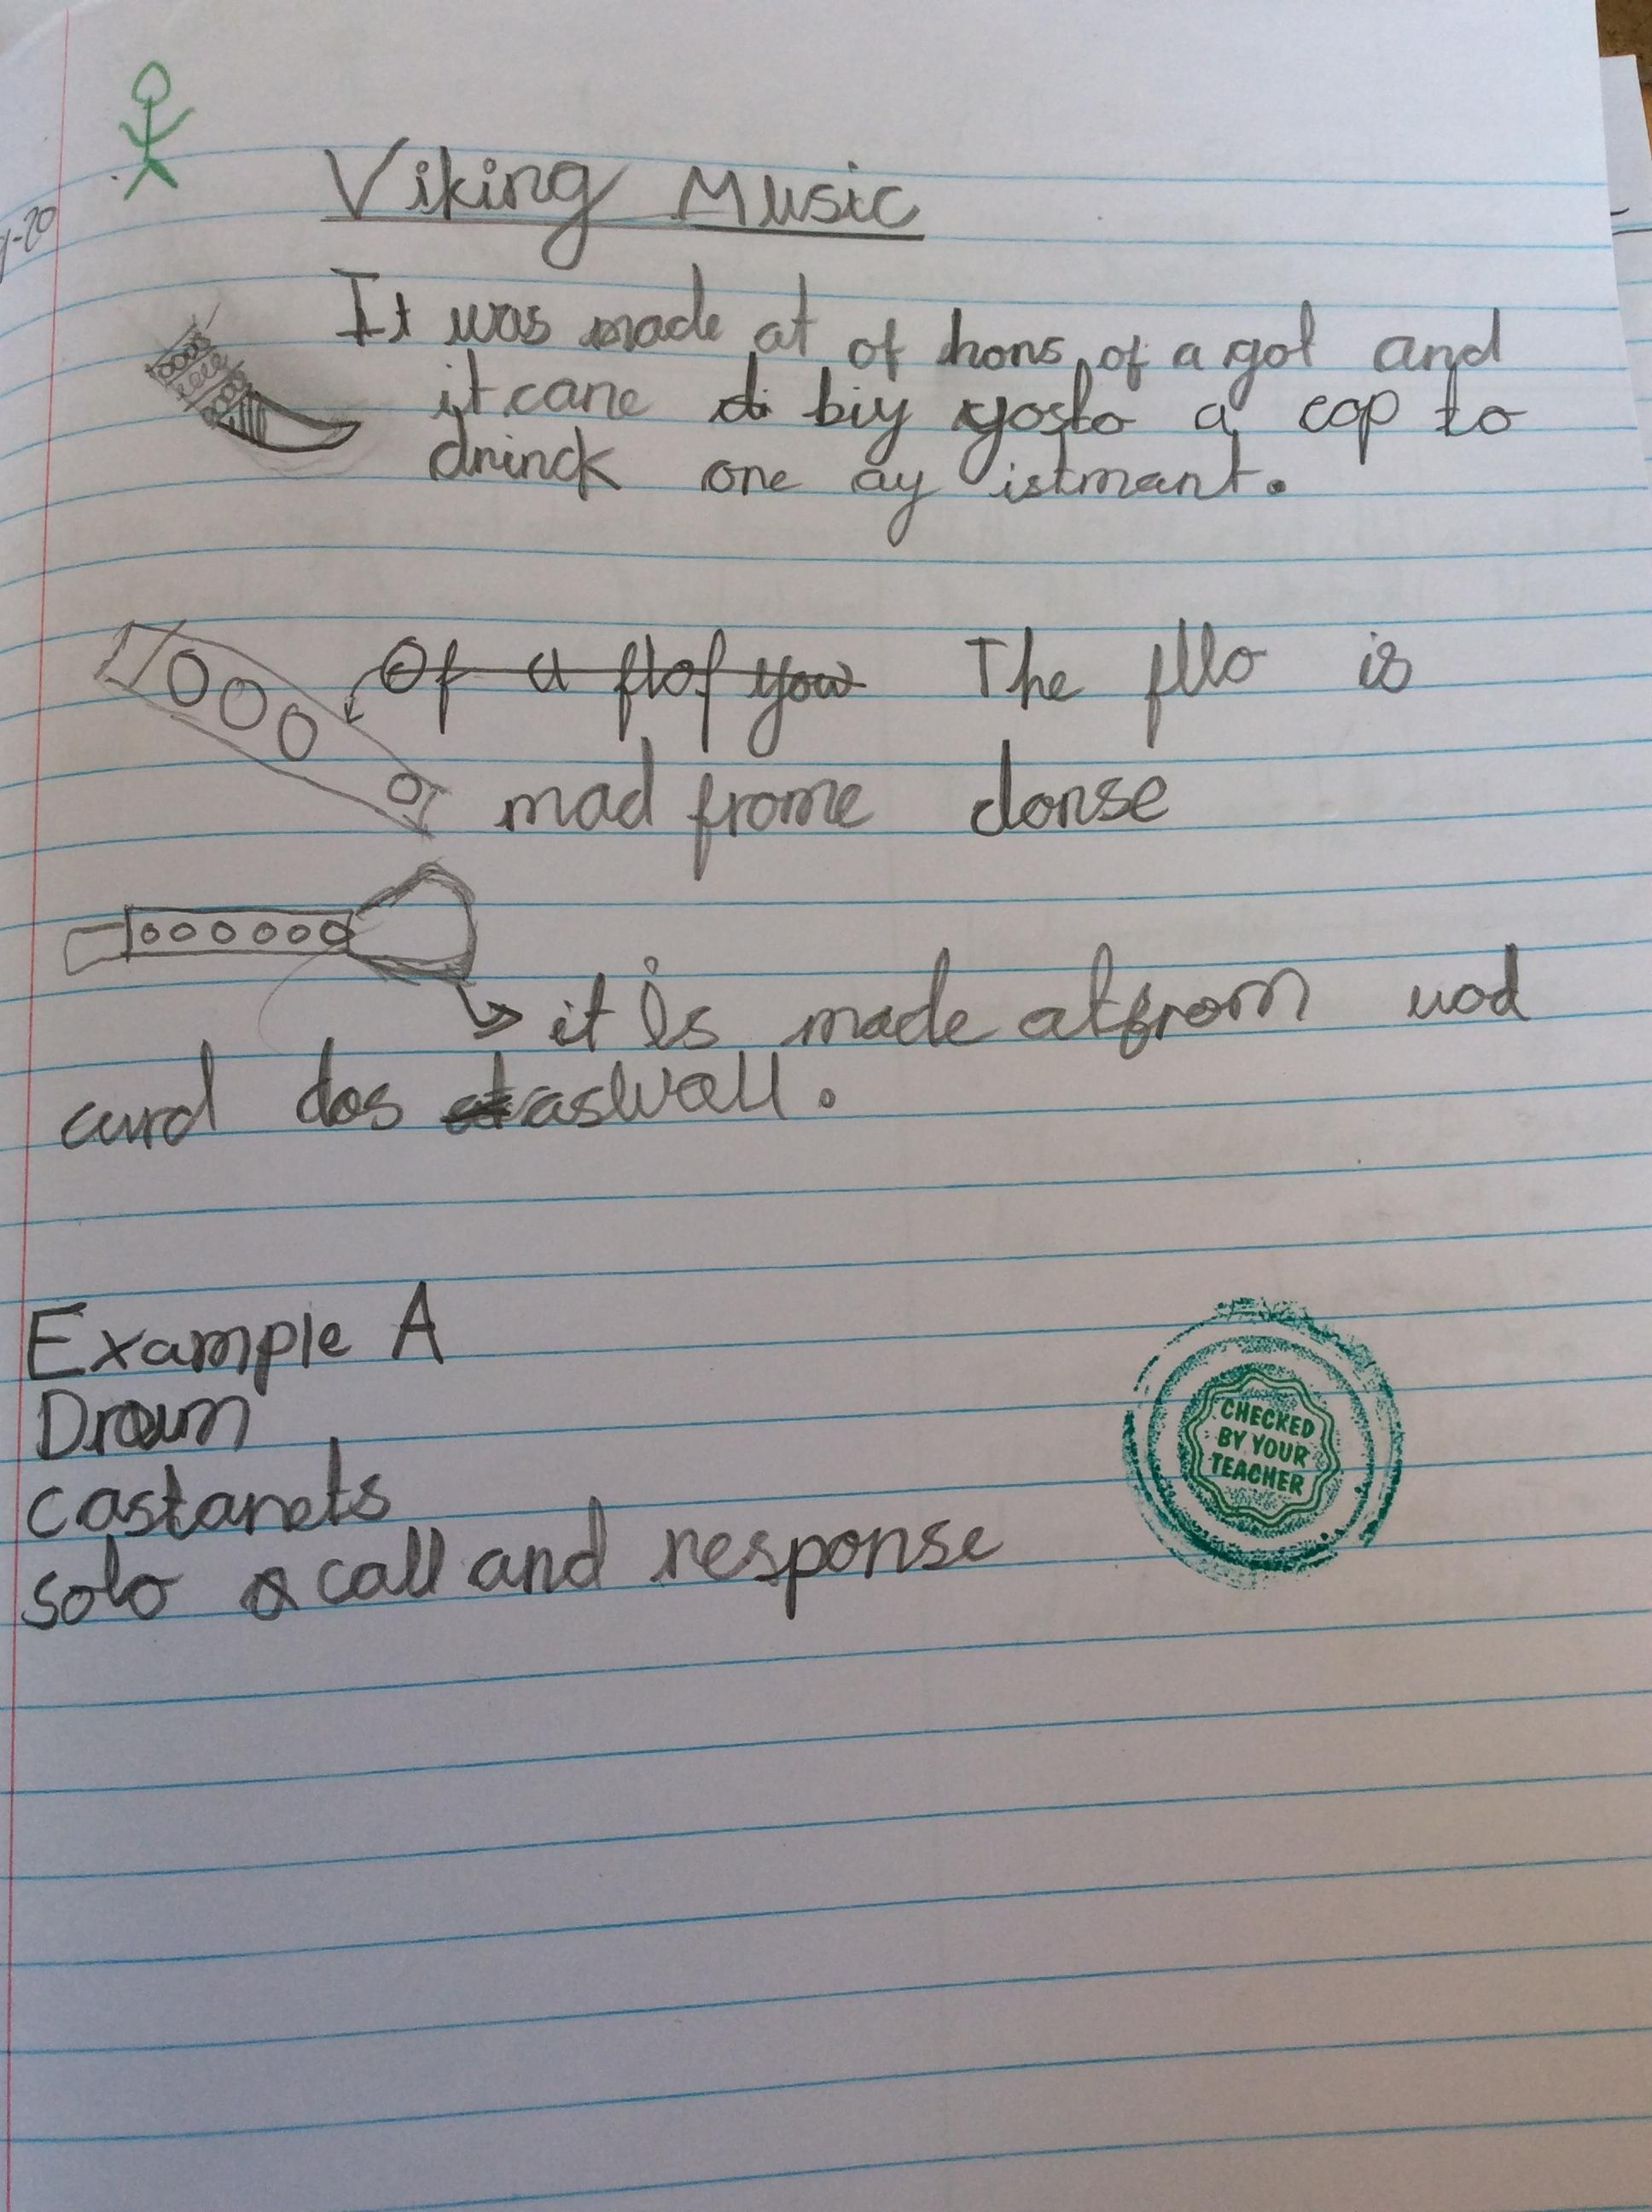 Viking Music
It was made at of hons of a gol and
it cane di biy yosto a cop to
drinck one ay istmant.
Of a flof yow The fllo is
mad frome donse
it is made at from uod
aurd dos aswall.
Example A
Drum
castanets
solo a call and response
CHECKED
BY YOUR
TEACHER